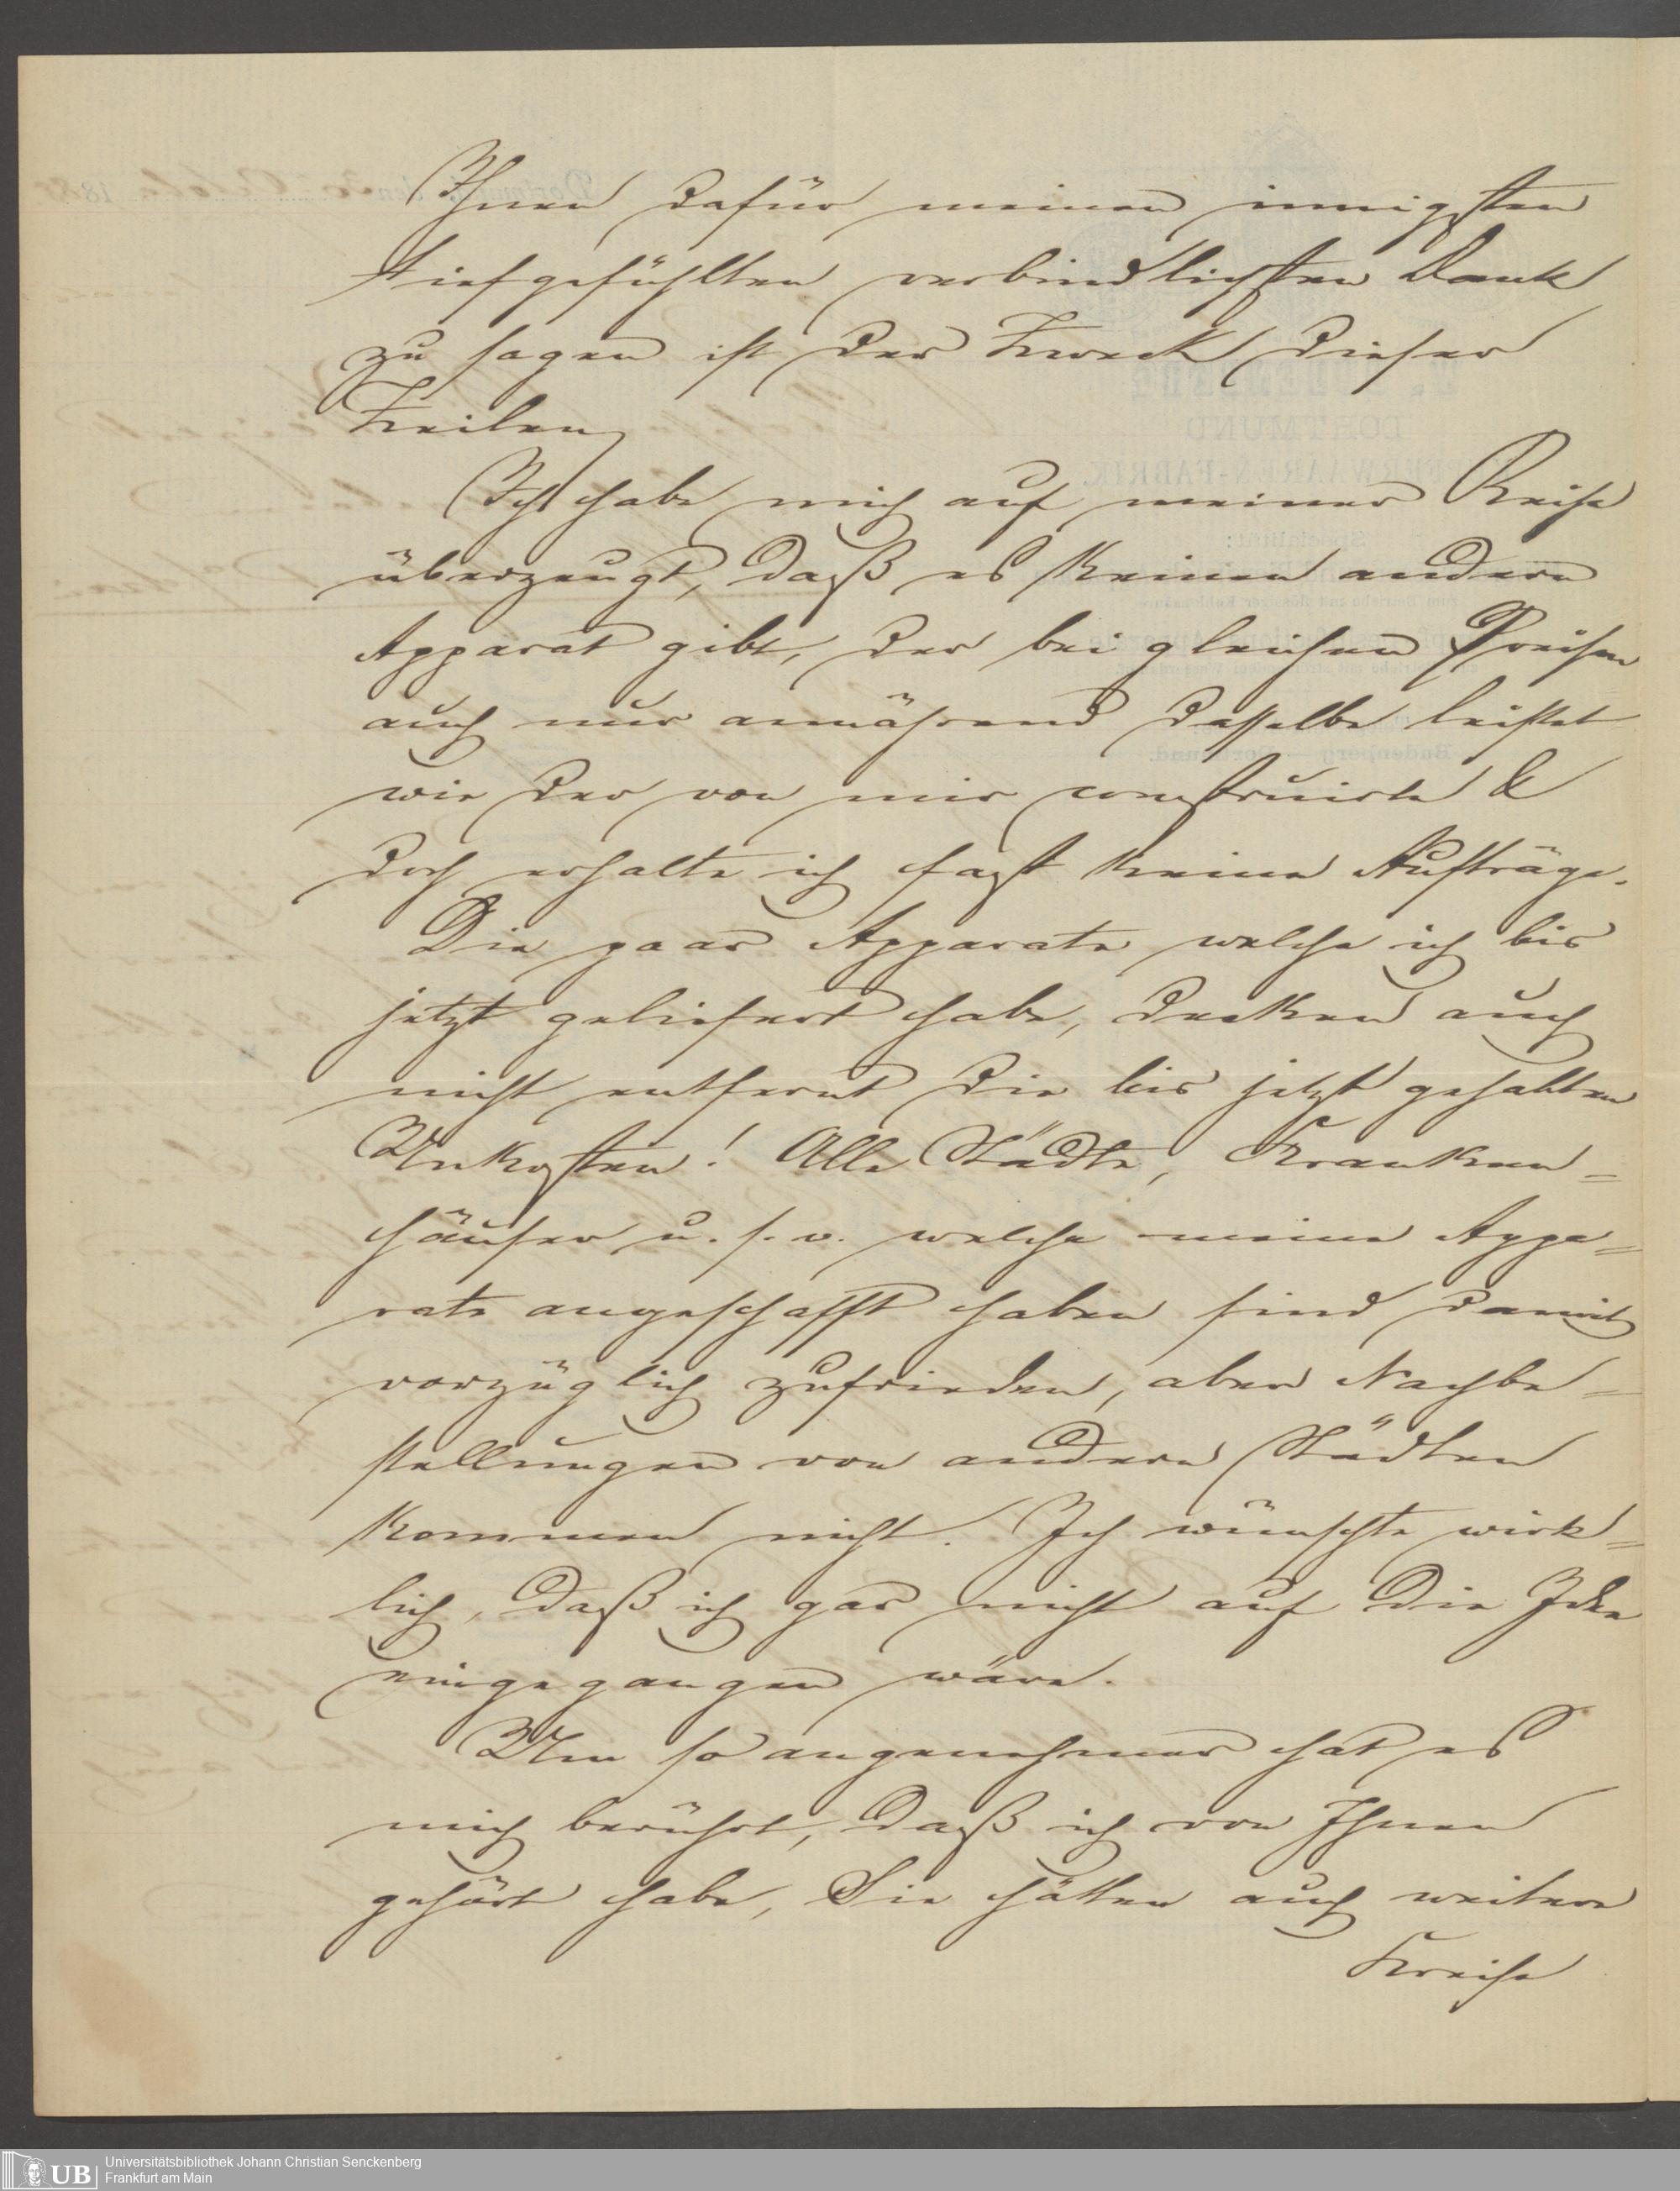 Ihnen dafür meinen innigsten
tiefgefühlten verbindlichsten Dank
zu sagen ist der Zweck dieser
Zeilen
Ich habe mich auf meiner Reise
überzeugt, daß es keinen andern
Apparat gibt, der bei gleichen Preisen
auch nur annährend dasselbe leistet
wie der von mir construirte &
doch erhalte ich fast keine Aufträge.
Die paar Apparate welche ich bis
jetzt geliefert habe, decken auch
nicht entfernt die bis jetzt gehabten
Unkosten! Alle Städte, Kranken=
häuser u. s. w. welche meine Appa=
rate angeschafft haben sind damit
vorzüglich zufrieden, aber Nachbe=
stellungen von andern Städten
kommen nicht. Ich wünschte wirk=
lich, daß ich gar nicht auf die Idee
eingegangen wäre.
Um so angenehmer hat es
mich berührt, daß ich von Ihnen
gehört habe, Sie hätten auch weitere
Kreise
UB
Universitätsbibliothek Johann Christian Senckenberg
Frankfurt am Main